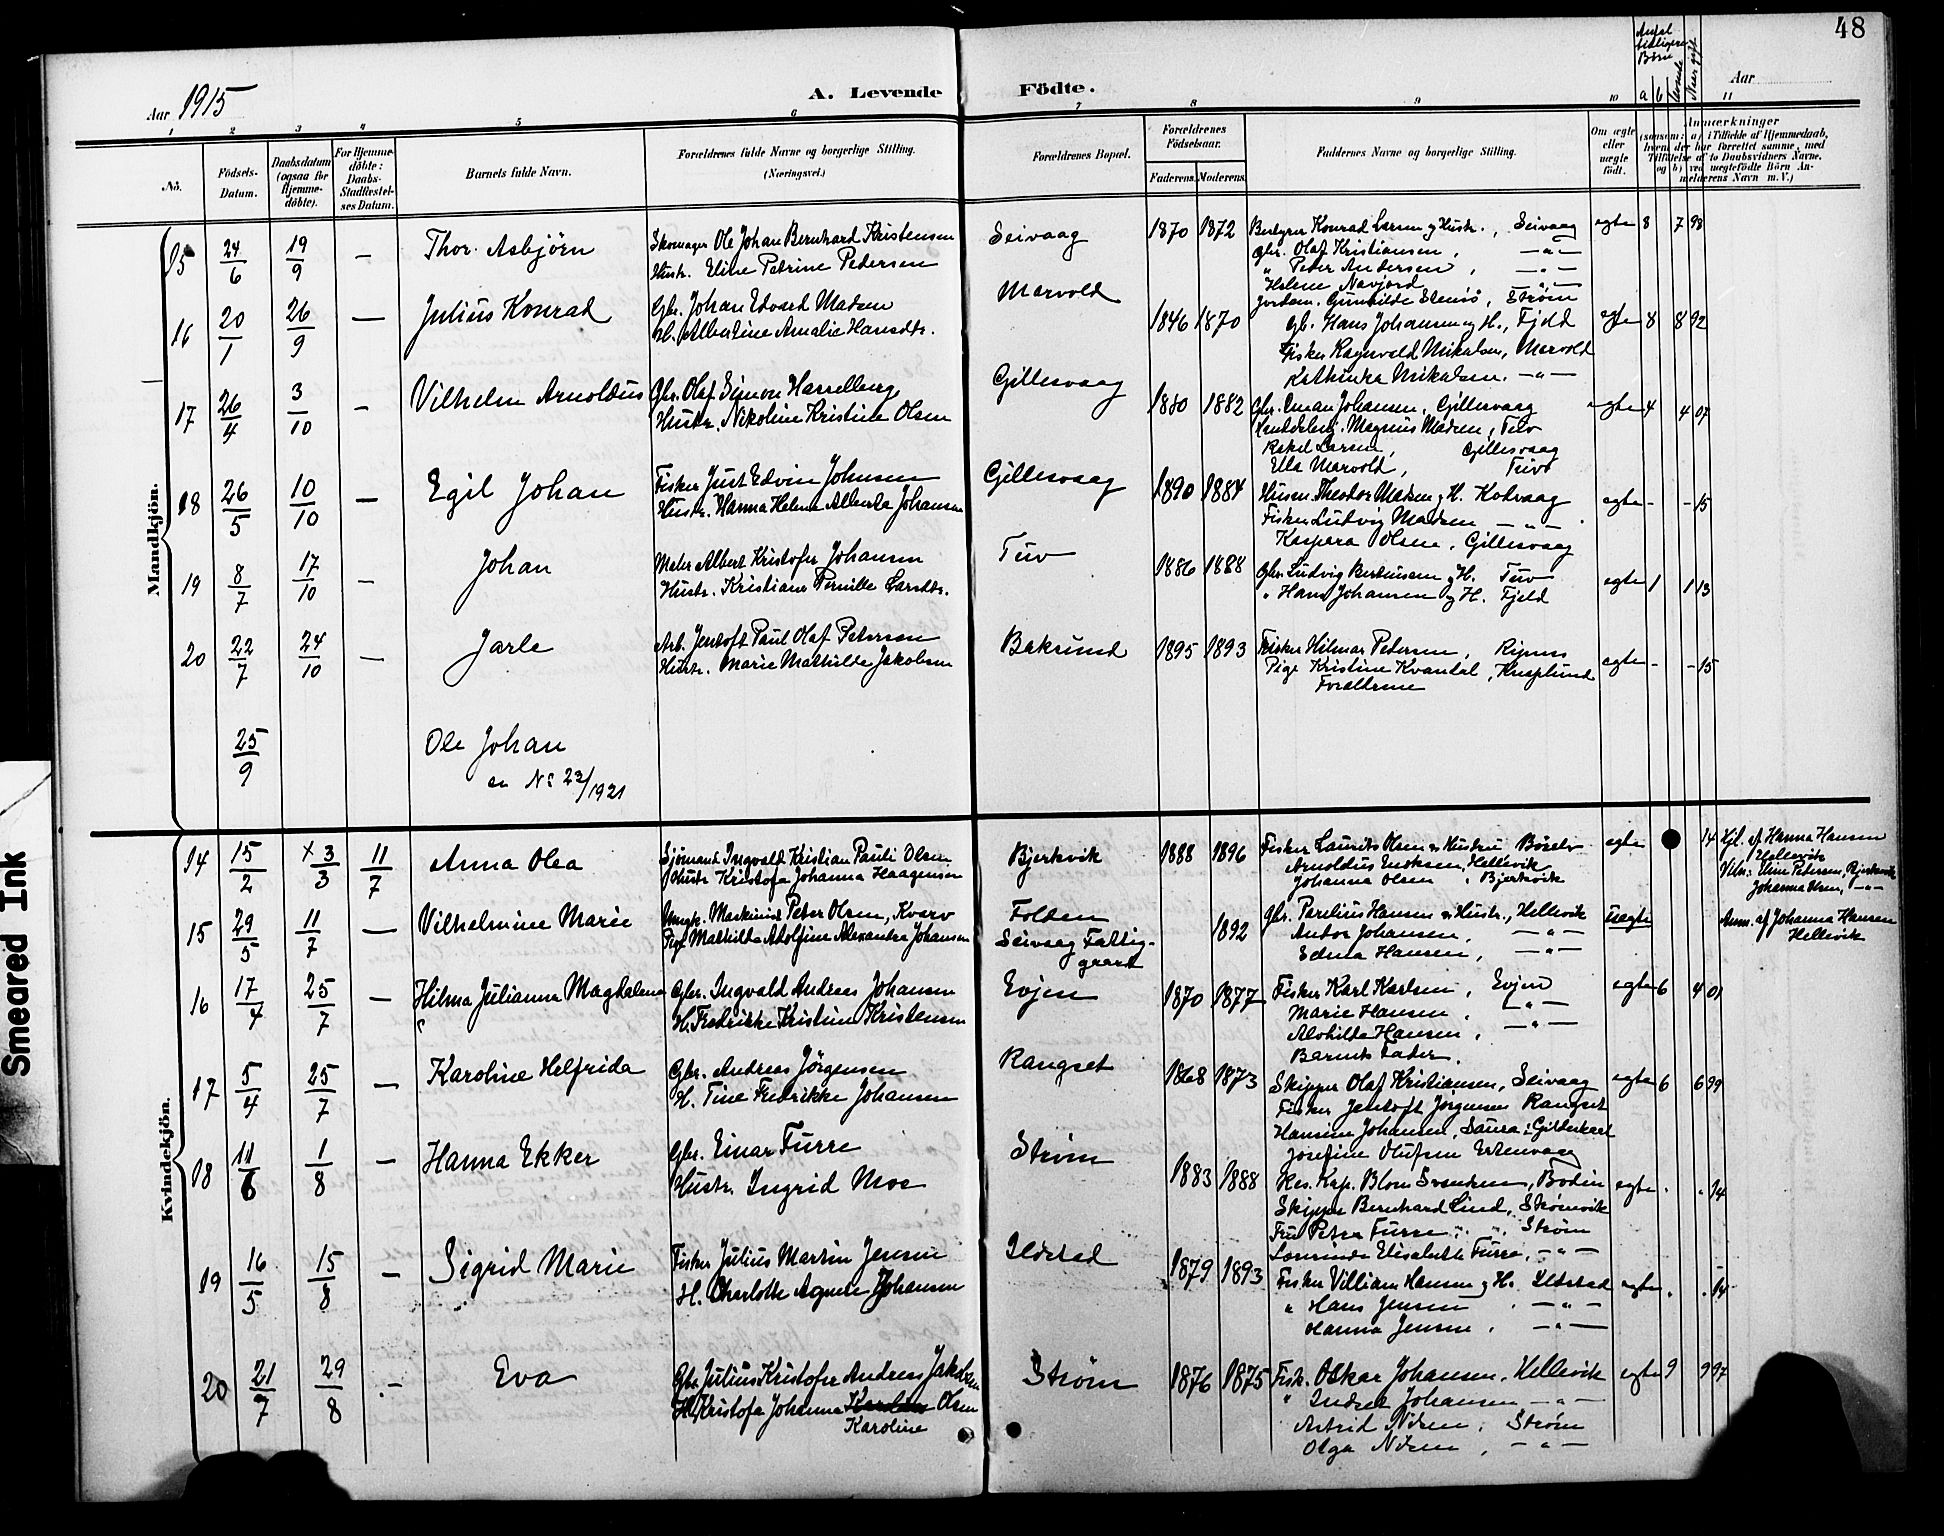 48
Aar 1915
A. Levende Födte.
Antal tidligere Börn
a b levende Naar gift
Aar
1 2 3 4 5 6 7 8 9 10 11
No.
Födsels-Datum.
Daabsdatum (ogsaa for Hjemme-döbte).
For Hjemme-döbte: Daabs-Stadfæstel-ses Datum.
Barnets fulde Navn.
Forældrenes fulde Navne og borgerlige Stilling.
(Næringsvei.)
Forældrenes Bopæl.
Forældrenes Födselsaar.
Faderens. Moderens.
Faddernes Navne og borgerlige Stilling.
Om ægte eller uægte födt.
Anmærkninger
(saasom: a) i Tilfælde af Hjemmedaab, hvem der har forrettet samme, med Tilföielse af to Daabsvidners Navne, og b) ved uægtefödte Börn An-melderens Navn m. V.)
Mandkjön.
15 24/6 19/9 — Thor Asbjörn Skomager Ole Johan Bernhard Kristensen Seivaag 1870 1872 Konrad Larsen og Hustr., Seivaag egte 8 7 98
Hustr. Eline Petrine Pedersen Gbr. Olaf Kristiansen, —"—
" Peter Andersen, —"—
Helene Navjord —"—
Jordem. Gunhilde Stensö, Strøm
16 20/1 26/9 — Julius Konrad Gbr. Johan Edvard Madsen Marvold 1846 1870 Gb. Hans Johansen og H., Fjeld egte 8 8 92
H. Albertine Amalie Hansdtr. Fisker Ragnvald Mikalsen, Marvold
Kathinka Mikalsen. —"—
17 26/4 3/10 — Vilhelm Arnoldus Gbr. Olaf Simon Hasselberg Gillesvaag 1880 1882 Gbr. Johansen, Gillesvaag egte 4 4 07
Hustr. Nikoline Kristine Olsen Magnus Madsen, Tuv
Rakel Larsen, Gillesvaag
Ella Marvold, Tuv
18 26/5 10/10 — Egil Johan Fisker Just Edvin Johnsen Gillesvaag 1890 1884 Husm. Theodor Madsen og H. Kodvaag egte - - 15
Hustr. Hanna Helene Alberta Johansen Fisker Ludvig Madsen —"—
Kaspara Olsen, Gillesvaag
19 8/7 17/10 — Johan Maler Albert Kristofer Johansen Tuv 1886 1888 Gbr. Ludvig Berntsen og H. Tuv egte 1 1 13
Hustr. Kristiane Pernille Larsdtr. " Hans Johansen og H. Fjeld
20 22/7 24/10 — Jarle Arb. Jentoft Paul Olaf Petersen Baksund 1895 1893 Fisker Hilmar Pedersen, egte - - 15
Hustr. Marie Mathilde Jakobsen Pige Kristine Kvandal, Knaplund
Forældrene
25/9 Ole Johan
se No 23/1921
Kvindekjön.
14 15/2 x 3/3 11/7 Anna Olea Sjömand Ingvald Kristian Pauli Olsen Bjerkvik 1888 1896 Fisker Laurits Olsen og Hustru egte 14 Hjd. af Hanna Hansen
Hustr. Kristofa Johanna Haagensen Arnoldus Hellevik Hellevik
Johanna Olsen, Bjerkvik Vidn: Eline Petersen, Bjerkvik
Johanna Olsen, —"—
15 29/5 11/7 — Vilhelmine Marie Ungk. Maskinist Peter Olsen, Kvarv Folden Gbr. Parelius Hansen og Hustr., Hellevik uegte Anm. af Johanna Hansen
Pige Mathilde Adolfine Alexandra Johansen Seivaag Fattig-gaard 1892 Andor Johansen, —"— Hellevik
Edna Hansen, —"—
16 17/4 25/7 — Hilma Julianna Magdalena Gbr. Ingvald Andreas Johansen Evjen 1870 1877 Fisker Karl Karlsen, Evjen egte 6 4 01
H. Fredrikke Kristine Kristensen Marie Hansen, —"—
Alvhilde Hansen, —"—
Barnets Fader.
17 5/4 25/7 — Karoline Helfrida Gbr. Andreas Jörgensen Rangset 1868 1873 Skipper Olaf Kristiansen, Seivaag egte 6 6 99
H. Tine Fredrikke Johansen Fisker Jentoft Jörgensen Rangset
Hansine Johansen,
Josefine Olufsen
18 11/6 1/8 — Hanna Ekker Gbr. Einar Furre Strøm 1883 1888 Res. Kap. Blom Svendsen, Bodin egte . . 14
Hustr. Ingrid Moe Skipper Bernhard Lind, Strømvik
Fru Petra Furre, Strøm
Lærerinde Elisabeth Furre, —"—
19 16/5 15/8 — Sigrid Marie Fisker Julius Martin Jensen Ildstad 1879 1893 Fisker Villiam Hansen og H. Ildstad egte . . 14
H. Charlotte Agnete Johansen " Hans Jensen, —"—
Hanna Jensen, —"—
20 21/7 29/8 — Eva Gbr. Julius Kristofer Andreas Jakobsen Strøm 1876 1875 Fisk. Oskar Johansen, Hellevik egte 9 9 97
H. Kristofa Johanna Karoline Olsen " Indrek Johansen —"—
Astrid Nilsen, Strøm
Olga Nilsen, —"—
Smeared Ink